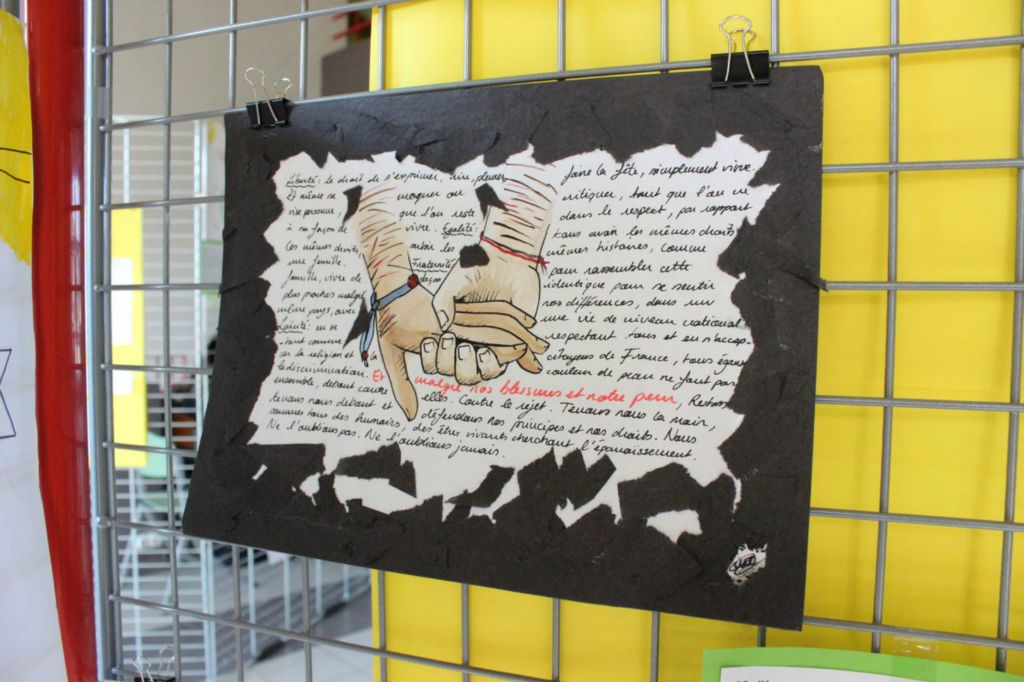 Liberté : le droit de s'exprimer, rire, pleurer, faire la fête, simplement vivre.
Et même se moquer ou critiquer, tant que l'on ne
vise personne, que l'on reste dans le respect, par rapport
à sa façon de vivre. Égalité : tous avoir les mêmes droits
Ces mêmes droits, avoir les mêmes histoires, comme
une famille. Fraternité pour rassembler cette
famille, vivre de façon identique pour se sentir
plus proches malgré nos différences, dans un
même pays, avec une vie de niveau national.
Laïcité : en se respectant tous et en s'accep-
-tant comme citoyens de France, tous égaux
car la religion et la couleur de peau ne font pas
la discrimination. Et malgré nos blessures et notre peur, Restons
ensemble, debout contre elles. Contre le rejet. Tenons nous la main,
tenons nous debout et défendons nos principes et nos droits. Nous
sommes tous des humains, des êtres vivants cherchant l'épanouissement.
Ne l'oublions pas. Ne l'oublions jamais.